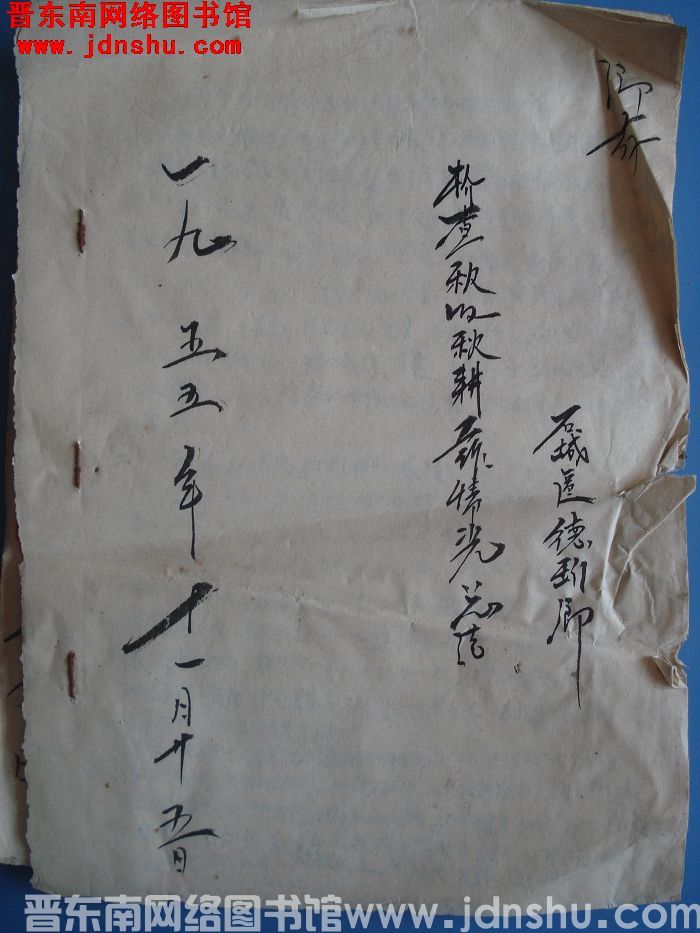 晋东南网络图书馆
www.jdnshu.com
石城区德到乡
检查秋收秋耕 情况总结
一九五五年十一月廿五日
晋东南网络图书馆www.jdnshu.com